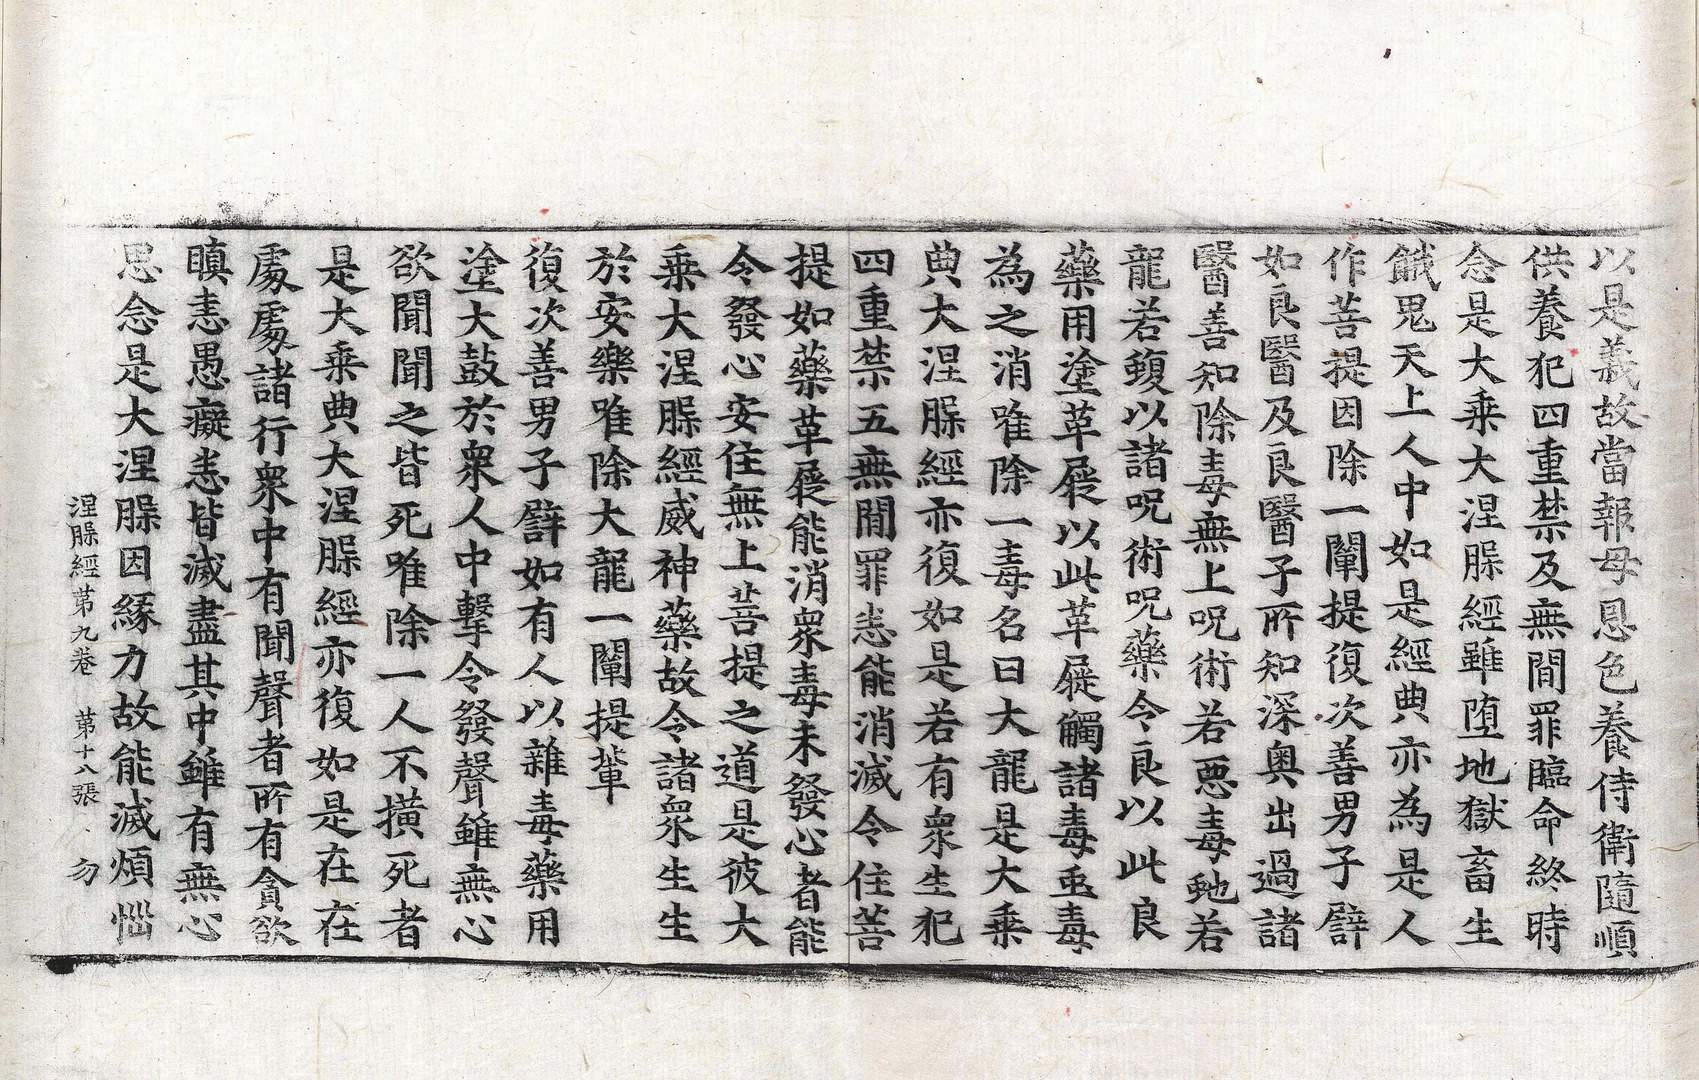 以是義故當報母恩色養侍衛隨順
供養犯四重禁及無間罪臨命終時
念是大乗大涅槃經雖堕地獄畜生
餓鬼天上人中如是經典亦為是人
作菩提因除一闡提復次善男子譬
如良醫及良醫子所知深奥出過諸
醫善知除毒無上呪術若惡毒虵若
龍若蝮以諸呪術呪藥令良以此良
藥用塗革屣以此革屣觸諸毒虫毒
為之消唯除一毒名曰大龍是大乗
典大涅槃經亦復如是若有衆生犯
四重禁五無間罪悉能消滅令住菩
提如藥革屣能消衆毒未發心者能
令發心安住無上菩提之道是彼大
乗大涅槃經威神藥故令諸衆生生
於安樂唯除大龍一闡提輩
復次善男子譬如有人以雜毒藥用
塗大鼓於衆人中擊令發聲雖無心
欲聞聞之皆死唯除一人不撗死者
是大乗典大涅槃經亦復如是在在
處處諸行衆中有聞聲者所有貪欲
瞋恚愚癡悉皆滅盡其中雖有無心
思念是大涅槃因縁力故能滅煩惱
涅槃經第九卷　第十八張　勿